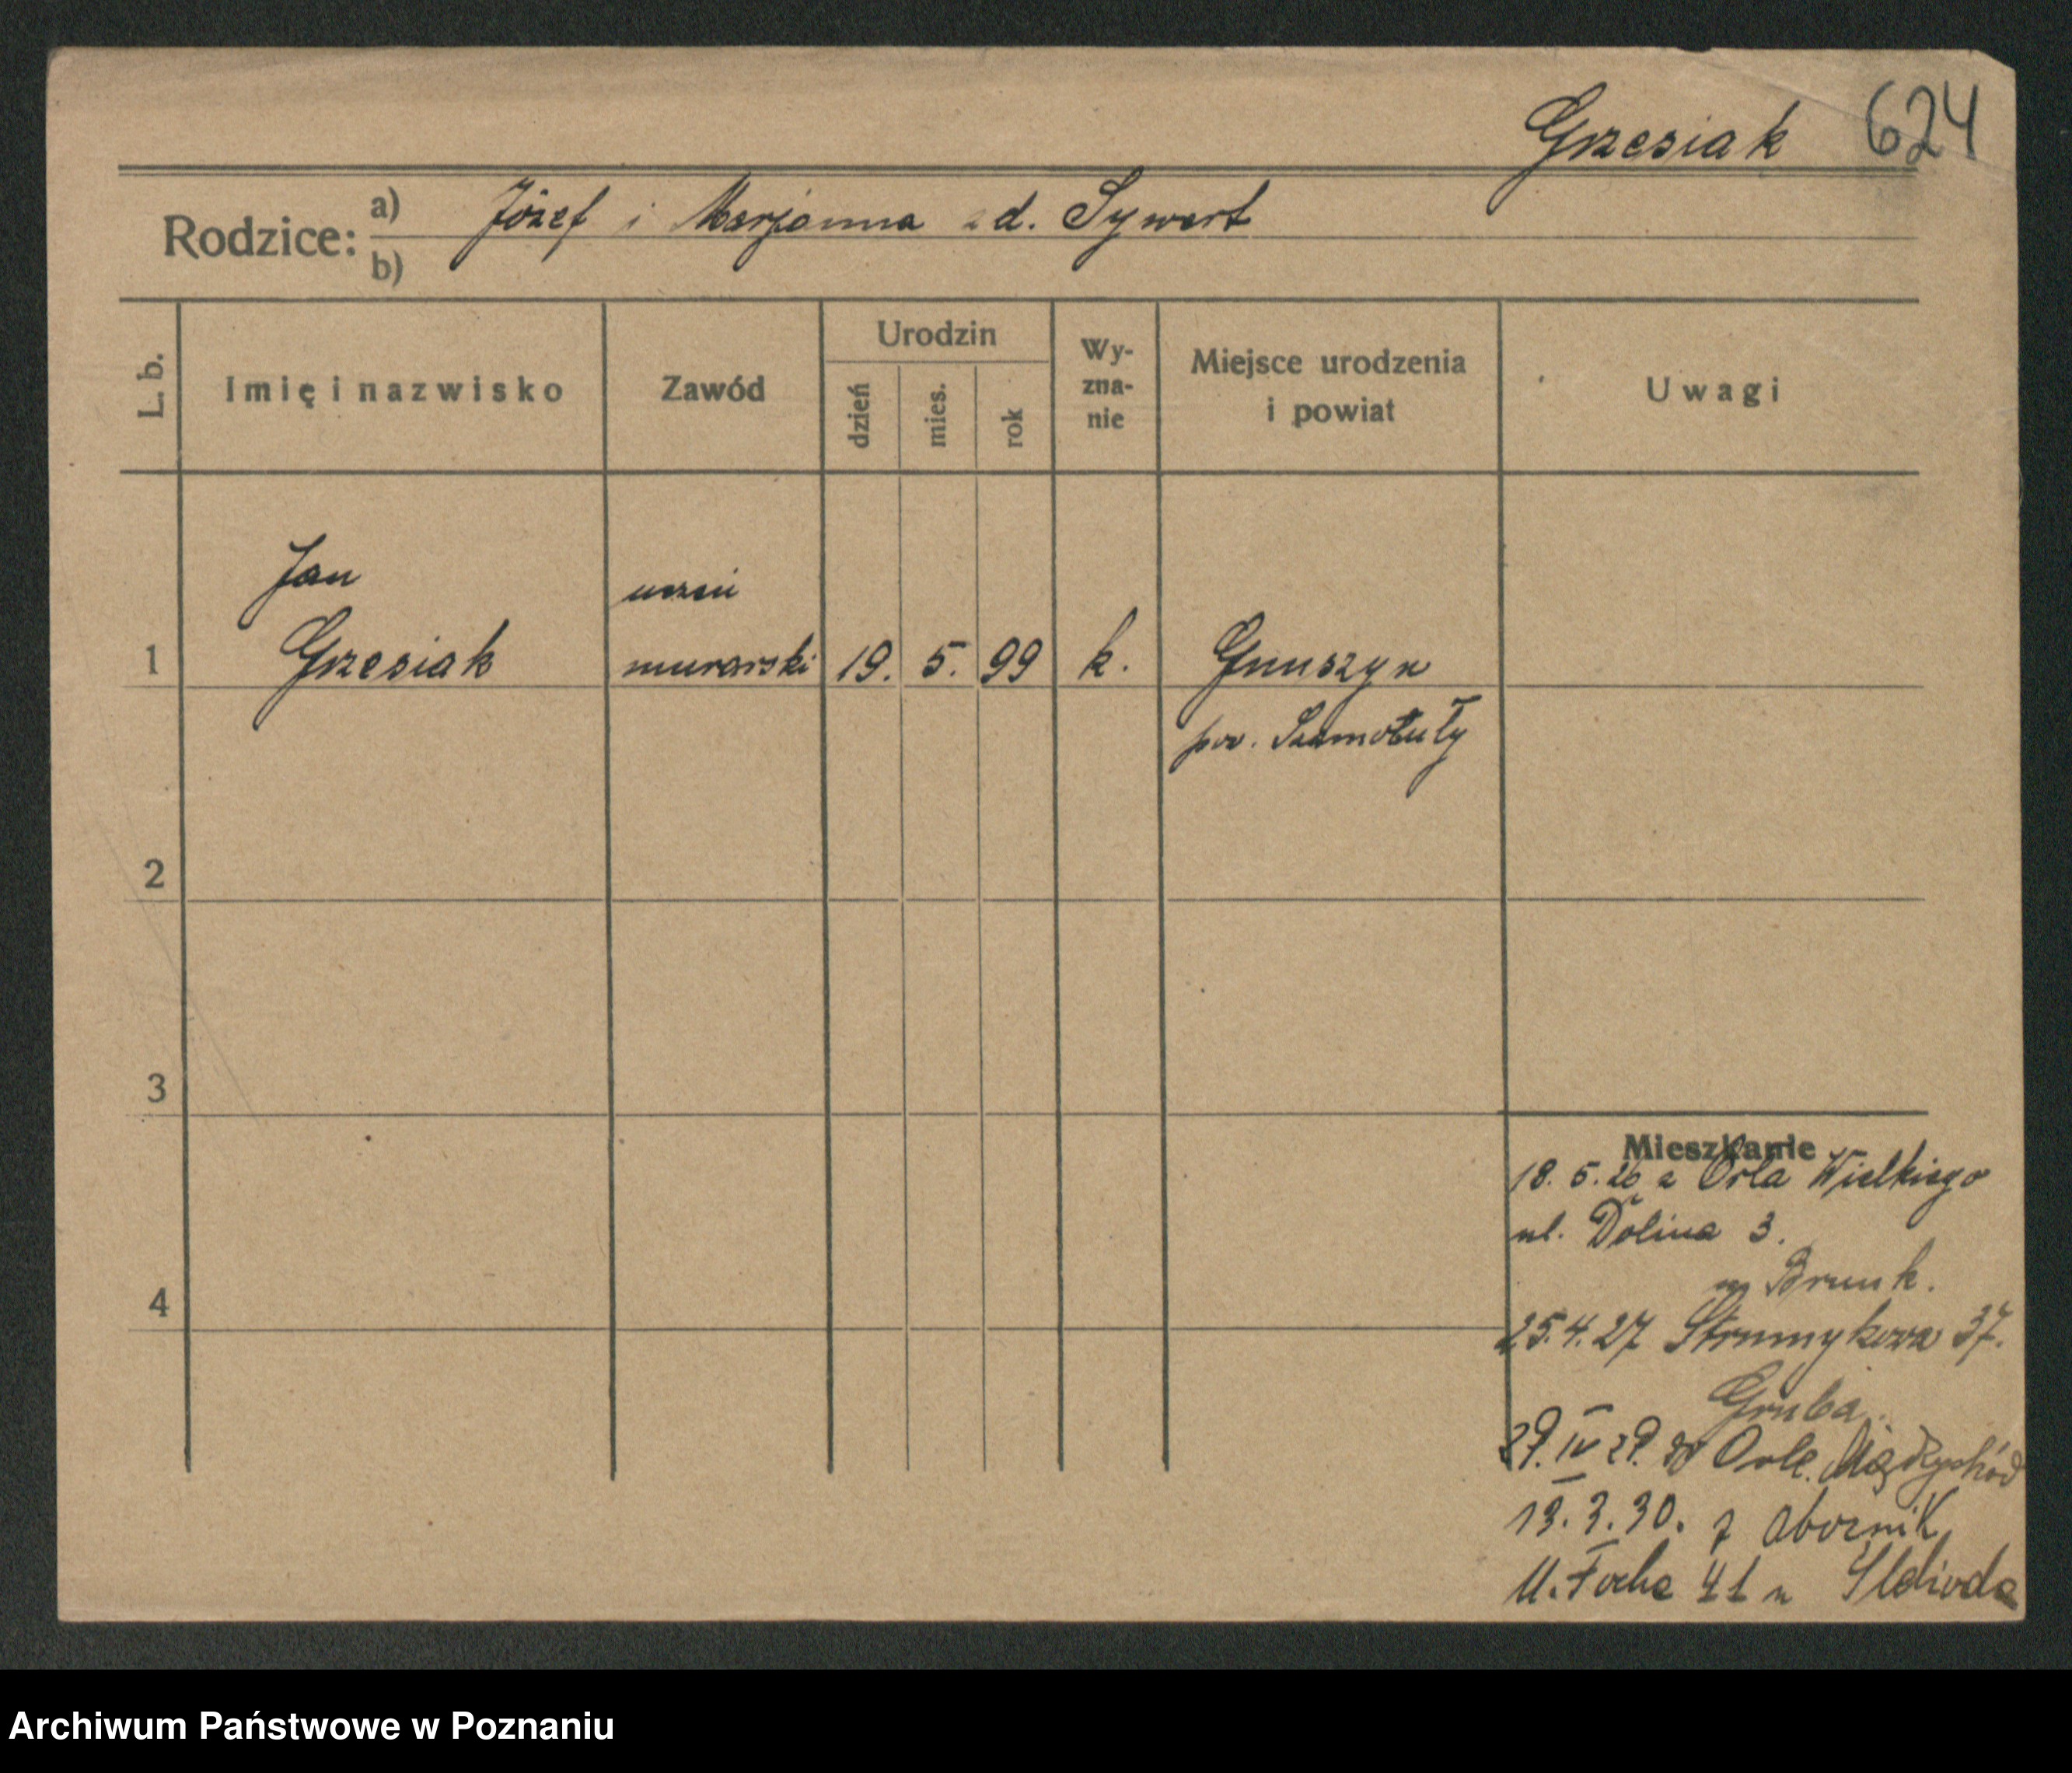 Grzesiak 624
Rodzice: a) Józef i Marjanna z d. Sywert
b)
L. b. Imię i nazwisko Zawód Urodzin dzień mies. rok Wy-zna-nie Miejsce urodzenia i powiat Uwagi
Jan uczeń
1 Grzesiak murarski 19. 5. 99 k. Gnuszyn
pow. Szamotuły
2
3
4
Mieszkanie
18. 5. 26 z Orla Wielkiego
ul. Dolina 3.
u Brunk.
25.4.27 Strumykowa 37.
Gruba.
29. IV 29. do Orle. Międzychód
13. 3. 30. z Obornik
M. Focha 41 u
Archiwum Państwowe w Poznaniu